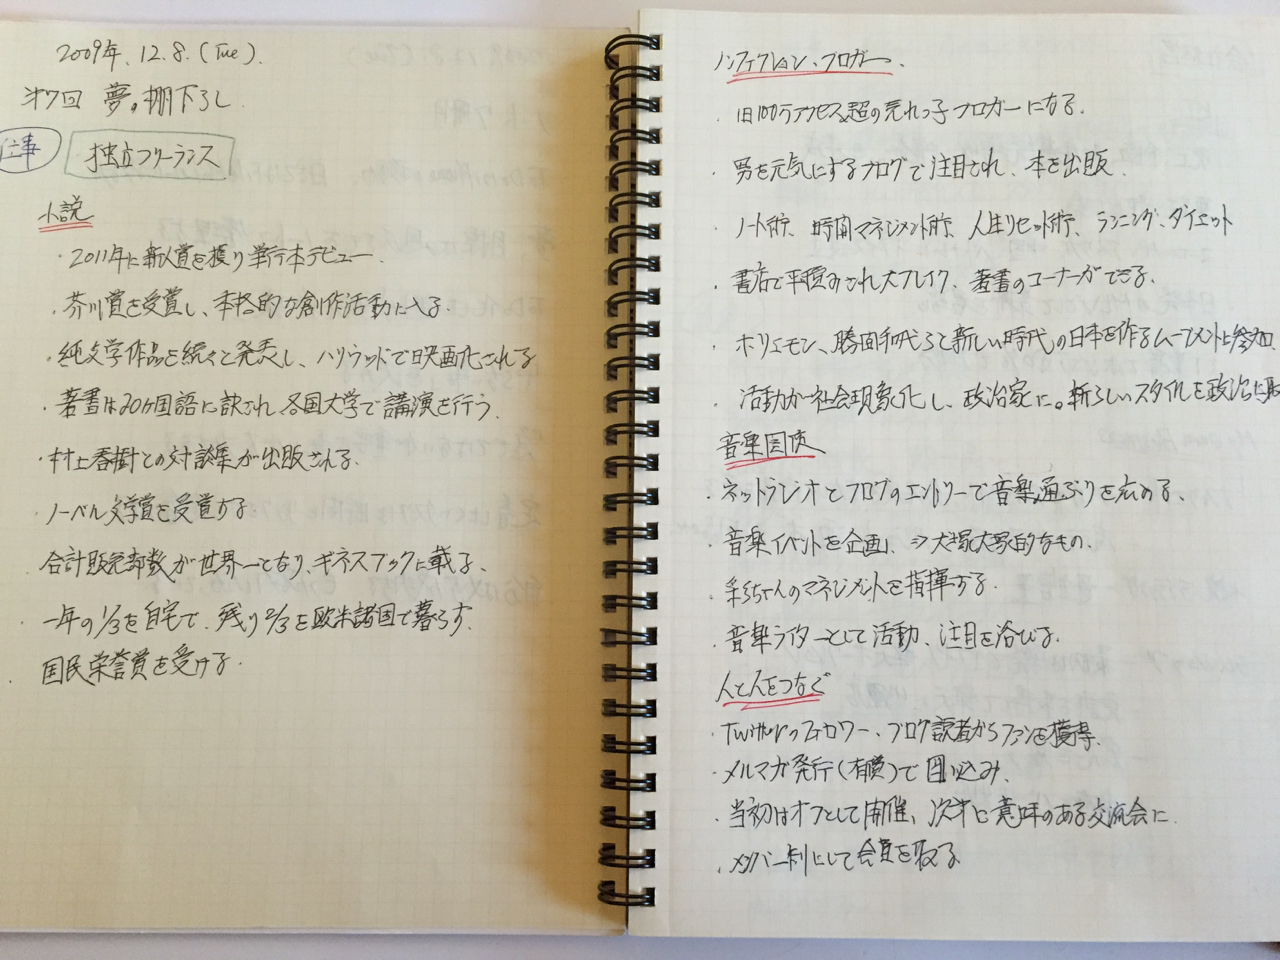 2009年.12.8.(Tue).
第7回 夢の棚下ろし
仕事 独立フリーランス
小説
・2011年に新人賞を獲り単行本デビュー.
・芥川賞を受賞し、本格的な創作活動に入る.
・純文学作品を続々と発表し、ハリウッドで映画化される
・著書は20ヶ国語に訳され各国大学で講演を行う.
・村上春樹との対談集が出版される.
・ノーベル文学賞を受賞する
・合計販売部数が世界一となり、ギネスブックに載る.
・一年の1/3を自宅で、残り2/3を欧米諸国で暮らす.
・国民栄誉賞を受ける.
ノンフィクション、ブロガー.
・1日100万アクセス超の売れっ子ブロガーになる.
・男を元気にするブログで注目され、本を出版.
・ノート術、時間マネジメント術、人生リセット術、ランニング、ダイエット
・書店で平積みされ大ブレイク、著書のコーナーができる.
・ホリエモン、勝間和代らと新しい時代の日本を作るムーブメントに参加.
・活動が社会現象化し、政治家に。新らしいスタイルを政治に
音楽関係
・ネットラジオとブログのエントリーで音楽通ぶりを広める、
・音楽イベントを企画、⇒大塚大家的なもの.
・ちゃんのマネジメントを指揮する.
・音楽ライターとして活動、注目を浴びる.
人と人をつなぐ
・Twitterのフォロワー、ブログ読者からファンを獲得.
・メルマガ発行(有償)で囲い込み、
・当初はオフとして開催、次第に意味のある交流会に.
・メンバー制にして会員を取る